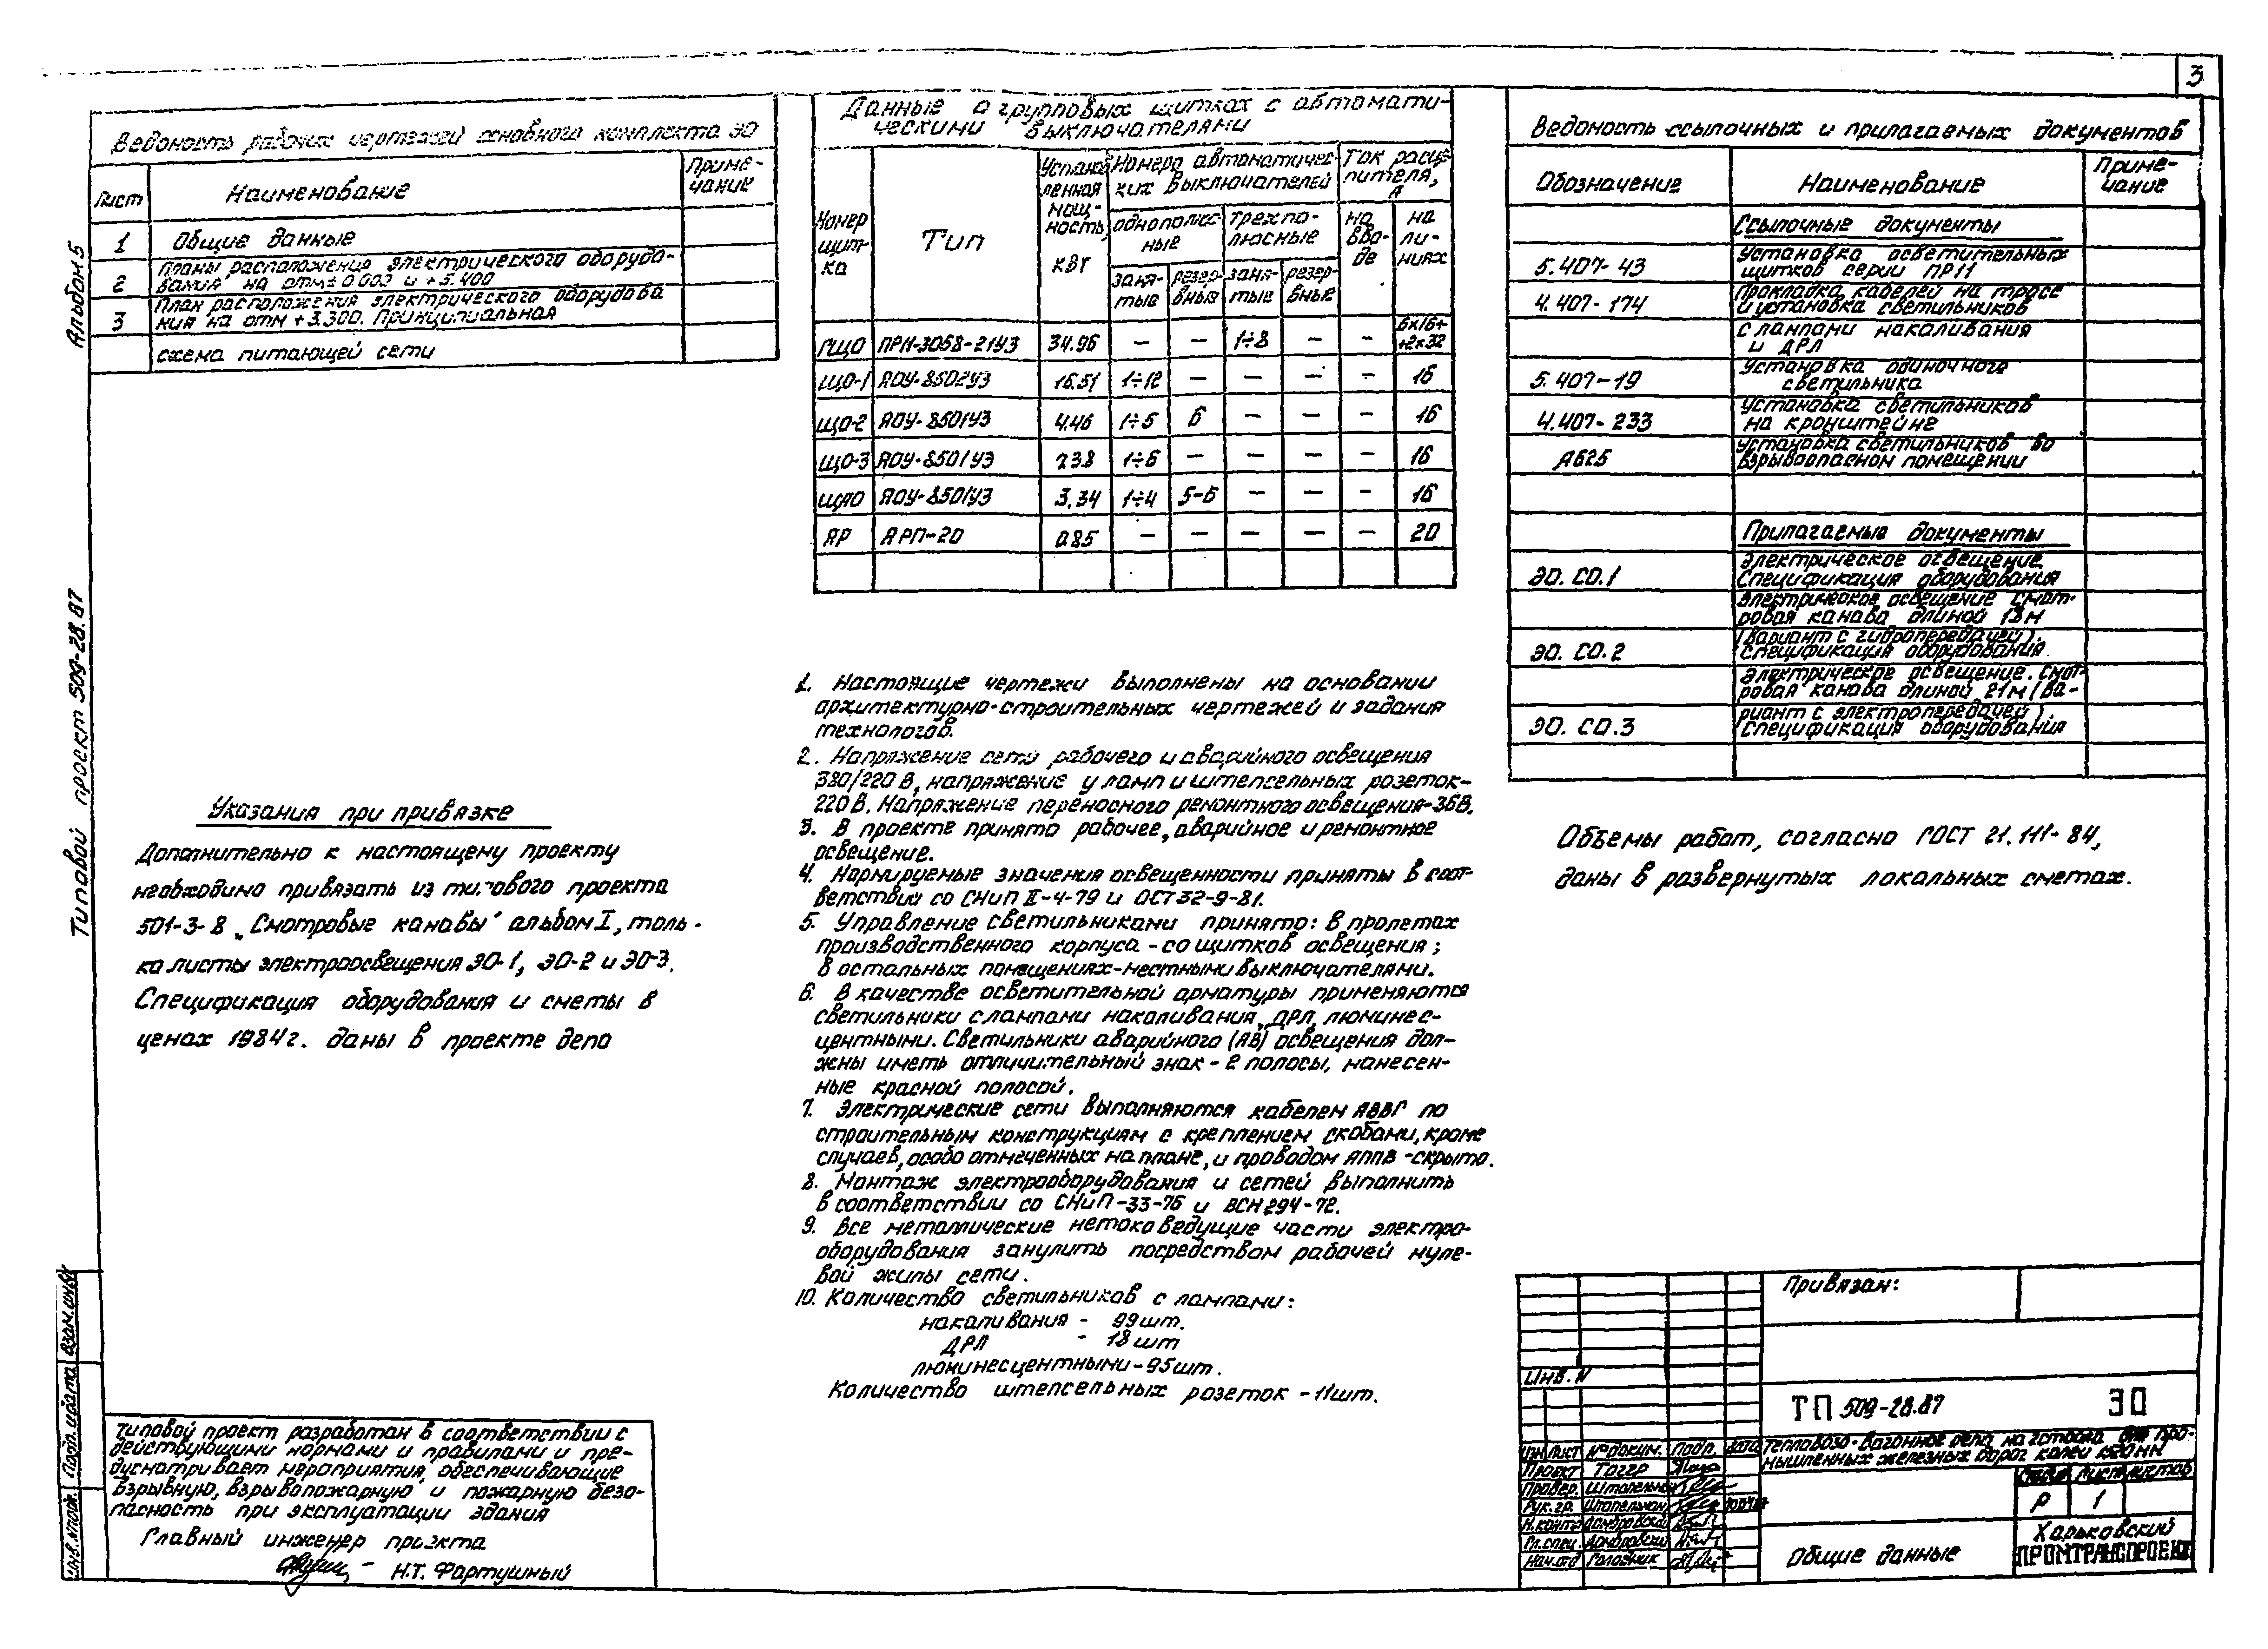 3
Альбом 5
Типовой проект 509-28.87
Ведомость рабочих чертежей основного комплекта ЭО
Лист Наименование Приме-
чание
1 Общие данные
2 Планы расположения электрического оборудо-
вания на отм ± 0.000 и +5.400
3 План расположения электрического оборудова
ния на отм +3.300. Принципиальная
схема питающей сети
Данные о групповых щитках с автомати-
ческими выключателями
Номер
щит-
ка
Тип
Установ
ленная
мощ-
ность,
кВт
Номера автоматичес-
ких выключателей
однополюс-
ные
трехпо-
люсные
заня-
тые
резер-
вные
заня-
тые
резер-
вные
Ток расце-
пителя,
А
на
вво-
де
на
ли-
ниях
ГЩО ПРН-3058-21У3 34.96 – – 1÷8 – – 6х16+
+2х32
ЩО-1 ЯОУ-8502У3 16.51 1÷12 – – – – 16
ЩО-2 ЯОУ-8501У3 4.46 1÷5 6 – – – 16
ЩО-3 ЯОУ-8501У3 2.38 1÷6 – – – – 16
ЩАО ЯОУ-8501У3 3.34 1÷4 5-6 – – – 16
ЯР ЯРП-20 0.85 – – – – – 20
Ведомость ссылочных и прилагаемых документов
Обозначение Наименование Приме-
чание
Ссылочные документы
5.407-43 Установка осветительных
щитков серии ПР11
4.407-174 Прокладка кабелей на тросе
и установка светильников
с лампами накаливания
и ДРЛ
5.407-19 Установка одиночного
светильника
4.407-233 Установка светильников
на кронштейне
А625 Установка светильников во
взрывоопасном помещении
Прилагаемые документы
ЭО. СО.1 Электрическое освещение.
Спецификация оборудования
Электрическое освещение смот-
ровая канава длиной 13м
ЭО. СО.2 (вариант с гидропередачей).
Спецификация оборудования.
Электрическое освещение. Смот-
ровая канава длиной 21м (ва-
ЭО. СО.3 риант с электропередачей).
Спецификация оборудования
Указания при привязке
Дополнительно к настоящему проекту
необходимо привязать из типового проекта
501-3-8 „Смотровые канавы" альбом I, толь-
ко листы электроосвещения ЭО-1, ЭО-2 и ЭО-3.
Спецификация оборудования и сметы в
ценах 1984г. даны в проекте депо
1. Настоящие чертежи выполнены на основании
архитектурно-строительных чертежей и задания
технологов.
2. Напряжение сети рабочего и аварийного освещения
380/220 В, напряжение у ламп и штепсельных розеток-
220 В. Напряжение переносного ремонтного освещения-36В.
3. В проекте принято рабочее, аварийное и ремонтное
освещение.
4. Нормируемые значения освещенности приняты в соот-
ветствии со СНиП II-4-79 и ОСТ 32-9-81.
5. Управление светильниками принято: в пролетах
производственного корпуса - со щитков освещения;
в остальных помещениях-местными выключателями.
6. В качестве осветительной арматуры применяются
светильники с лампами накаливания, ДРЛ, люминес-
центными. Светильники аварийного (АВ) освещения дол-
жны иметь отличительный знак - 2 полосы, нанесен-
ные красной полосой.
7. Электрические сети выполняются кабелем АВВГ по
строительным конструкциям с креплением скобами, кроме
случаев, особо отмеченных на плане, и проводом АППВ -скрыто.
8. Монтаж электрооборудования и сетей выполнить
в соответствии со СНиП-33-76 и ВСН 294-72.
9. Все металлические нетоковедущие части электро-
оборудования занулить посредством рабочей нуле-
вой жилы сети.
10. Количество светильников с лампами:
накаливания - 99шт.
ДРЛ - 18 шт
люминесцентными-95шт.
Количество штепсельных розеток - 11шт.
Объемы работ, согласно ГОСТ 21.111-84,
даны в развернутых локальных сметах.
Типовой проект разработан в соответствии с
действующими нормами и правилами и пре-
дусматривает мероприятия, обеспечивающие
взрывную, взрывопожарную и пожарную безо-
пасность при эксплуатации здания
Главный инженер проекта
Н.Т. Фартушный
Взам.инв№
Подп. и дата
Инв.№подл.
Привязан:
Инв. N
ТП 509-28.87 ЭО
Изм Лист № докум. Подп. Дата
Тепловозо-вагонное депо на 2 стойла для про-
мышленных железных дорог колеи 1520мм
Проект Тоггр
Провер. Штапельман
Рук.гр. Штапельман
Н.контр Домбровский
Гл.спец. Домбровский
Нач.отд Голобчик
Лист Листов
Р 1
Общие данные
Харьковский
ПРОМТРАНСПРОЕКТ